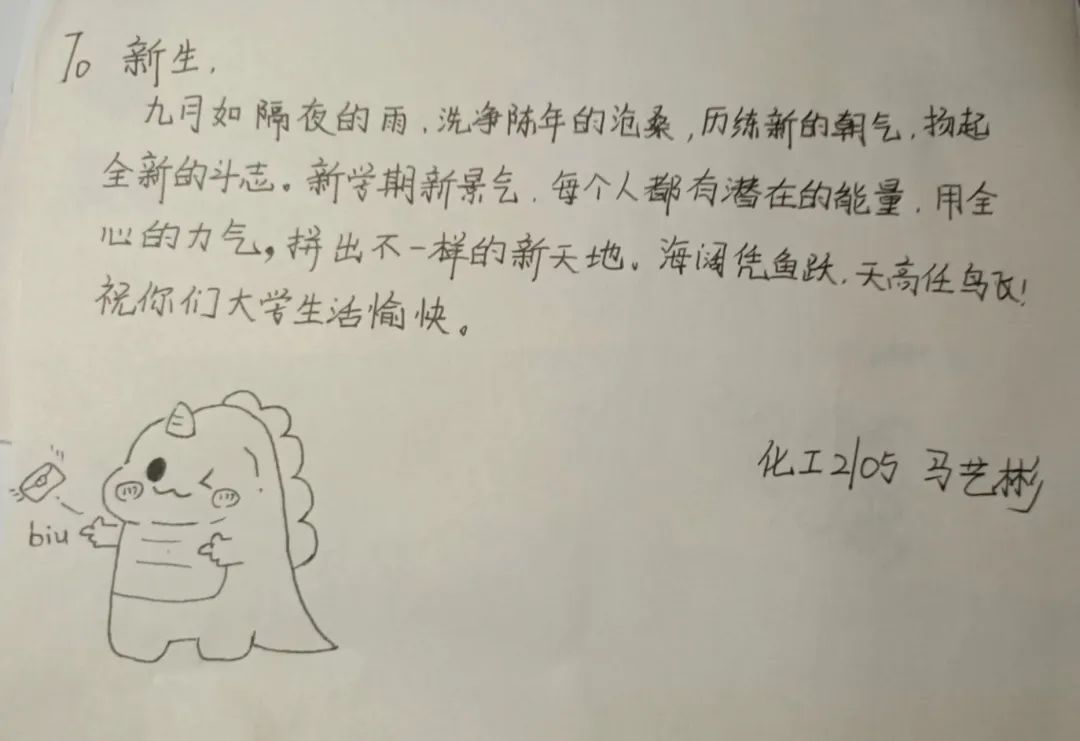 To 新生,
九月如隔夜的雨,洗净陈年的沧桑,历练新的朝气,扬起
全新的斗志。新学期新景气,每个人都有潜在的能量,用全
心的力气,拼出不一样的新天地。海阔凭鱼跃,天高任鸟飞!
祝你们大学生活愉快。
化工2105 马艺彬
biu